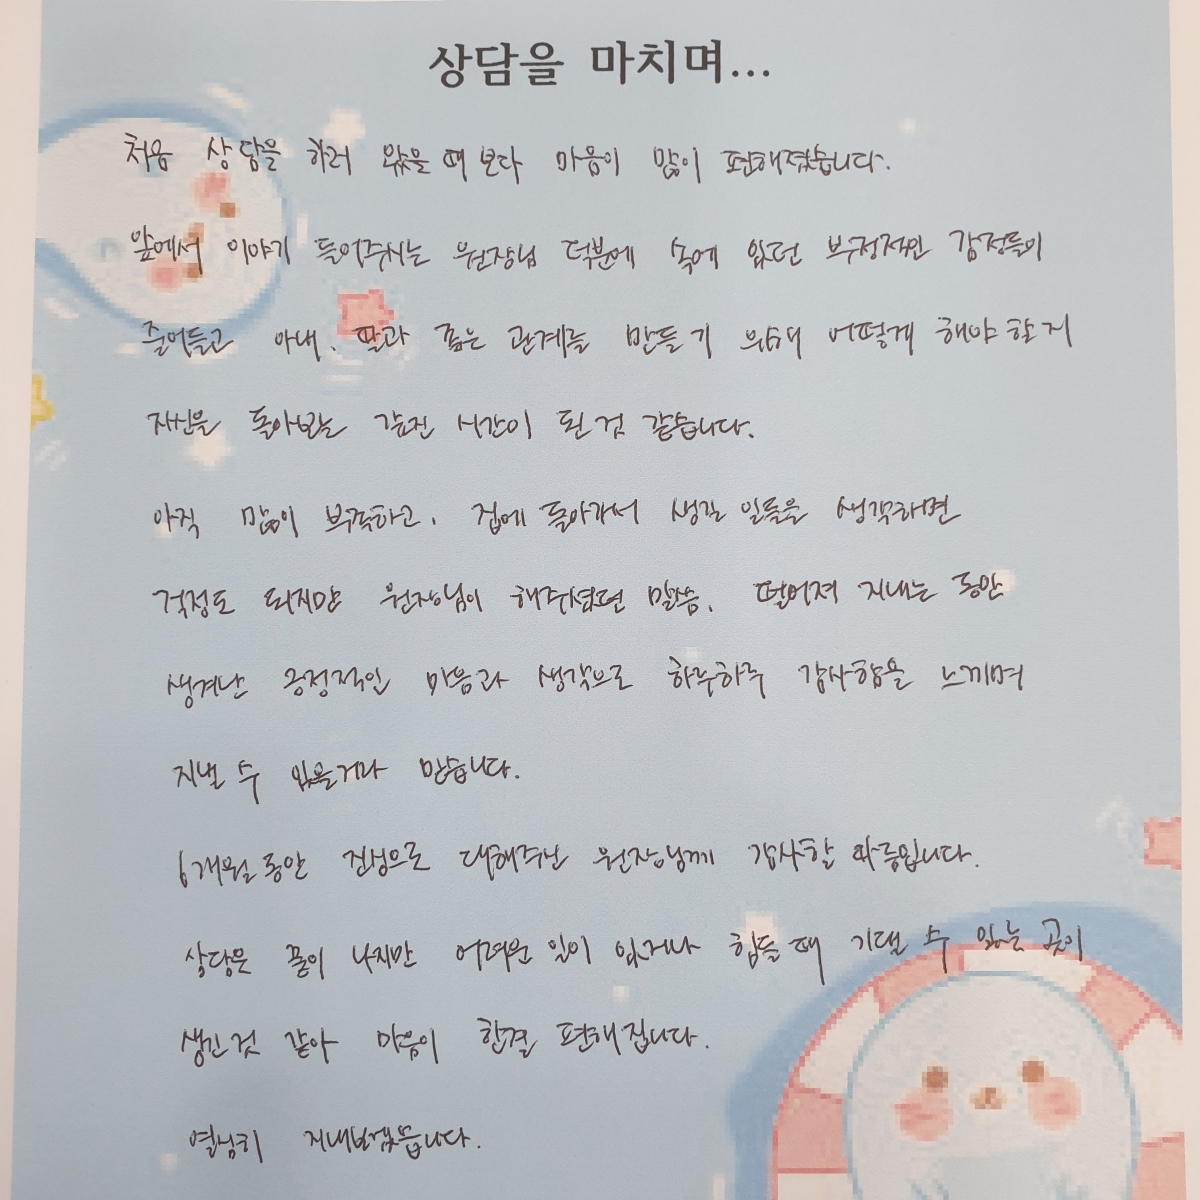 상담을 마치며...
처음 상담을 하러 왔을때보다 마음이 많이 편해졌습니다.
앞에서 이야기 들어주시는 원장님 덕분에 속에 있던 부정적인 감정들이
줄어들고 아내, 딸과 좋은 관계를 만들기 위해 어떻게 해야할지
자신을 돌아보는 값진 시간이 된것 같습니다.
아직 많이 부족하고, 집에 돌아가서 생길 일들을 생각하면
걱정도 되지만 원장님이 해주셨던 말씀, 떨어져 지내는 동안
생겨난 긍정적인 마음과 생각으로 하루하루 감사함을 느끼며
지낼 수 있을거라 믿습니다.
6개월동안 진심으로 대해주신 원장님께 감사할 따름입니다.
상담은 끝이 나지만 어려운 일이 있거나 힘들때 기댈 수 있는 곳이
생긴것 같아 마음이 한결 편해집니다.
열심히 지내보겠습니다.